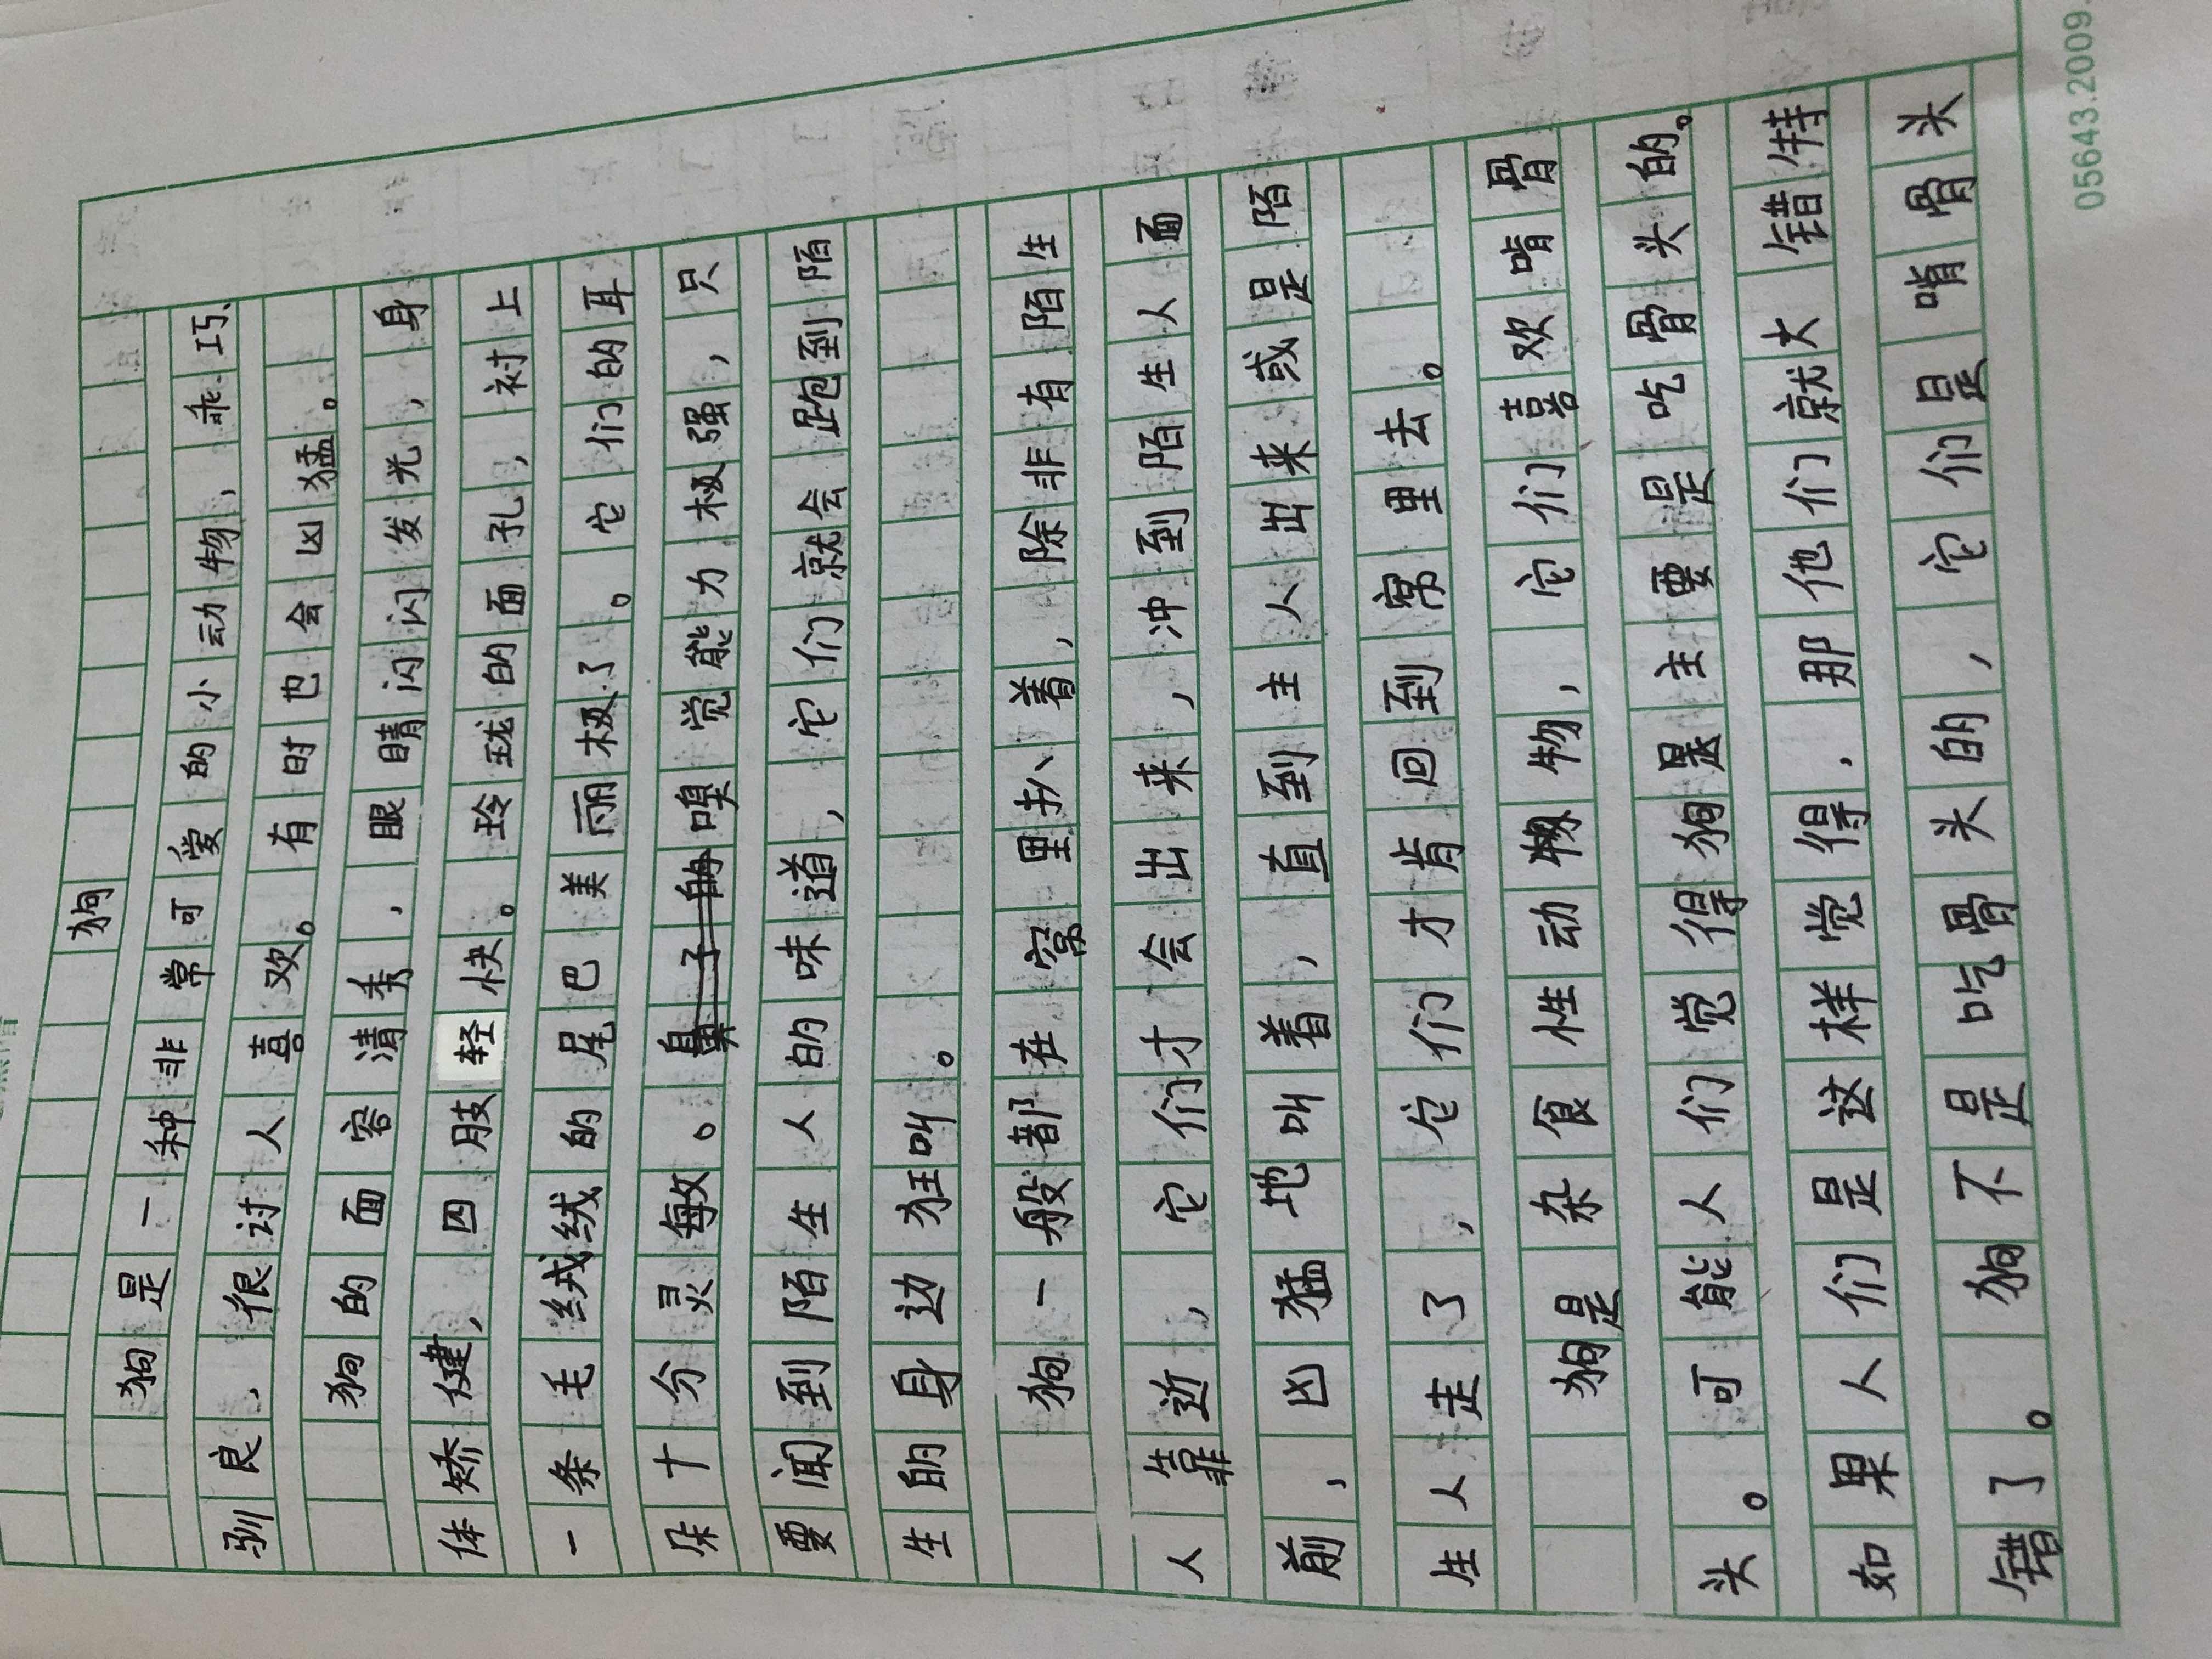 狗
狗是一种非常可爱的小动物，乖巧、
驯良、很讨人喜欢。有时也会凶猛。
狗的面容清秀，眼睛闪闪发光，身
体矫健，四肢轻快。玲珑的面孔，衬上
一条毛绒绒的尾巴美丽极了。它们的耳
朵十分灵敏。鼻子的嗅觉能力极强，只
要闻到陌生人的味道，它们就会跑到陌
生的身边狂叫。
狗一般都在窝里扒着，除非有陌生
人靠近，它们才会出来，冲到陌生人面
前，凶猛地叫着，直到主人出来或是陌
生人走了，它们才肯回到窝里去。
狗是杂食性动物物，它们喜欢啃骨
头。可能人们觉得狗是主要是吃骨头的。
如果人们是这样觉得，那他们就大错特
错了。狗不是吃骨头的，它们是啃骨头
05643.2009.